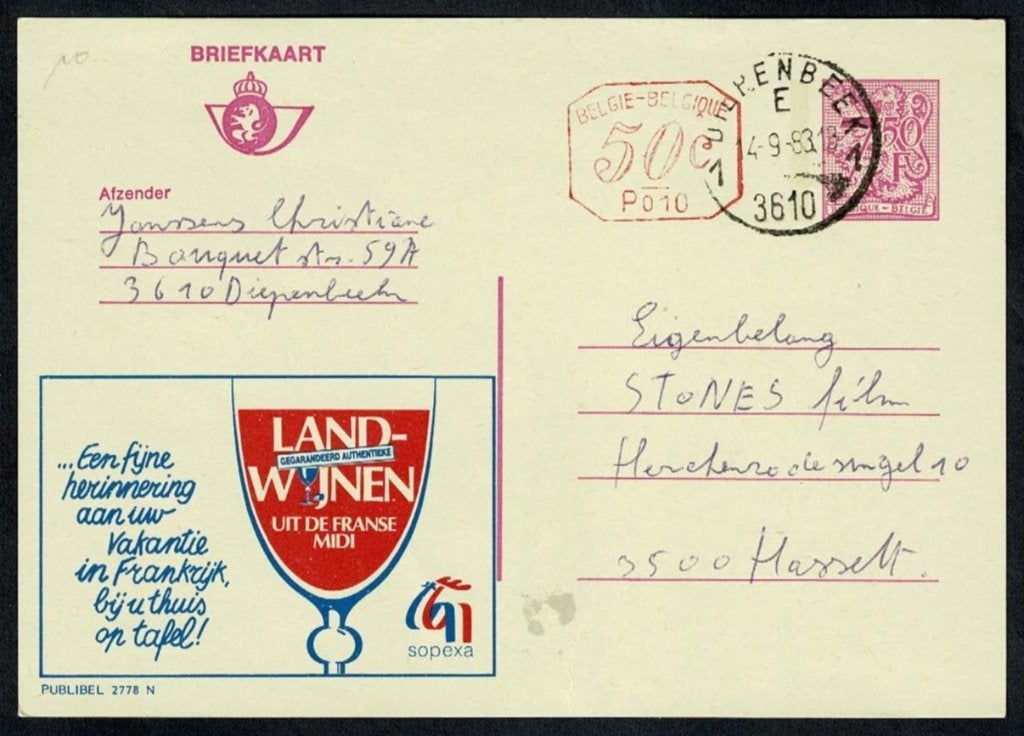 BRIEFKAART
BELGIE-BELGIQUE
50c
P010
E
14-9-83
3610
1 1
50
F
BELGIE
Afzender
Janssens Christiane
Banquet str. 59A
3610 Diepenbeek
Eigenbelang
STONES film
Herckenrodesingel 10
3500 Hasselt.
...Een fijne
herinnering
aan uw
vakantie
in Frankrijk,
bij u thuis
op tafel!
LAND-
GEGARANDEERD AUTHENTIEKE
WIJNEN
UIT DE FRANSE
MIDI
sopexa
PUBLIBEL 2778 N